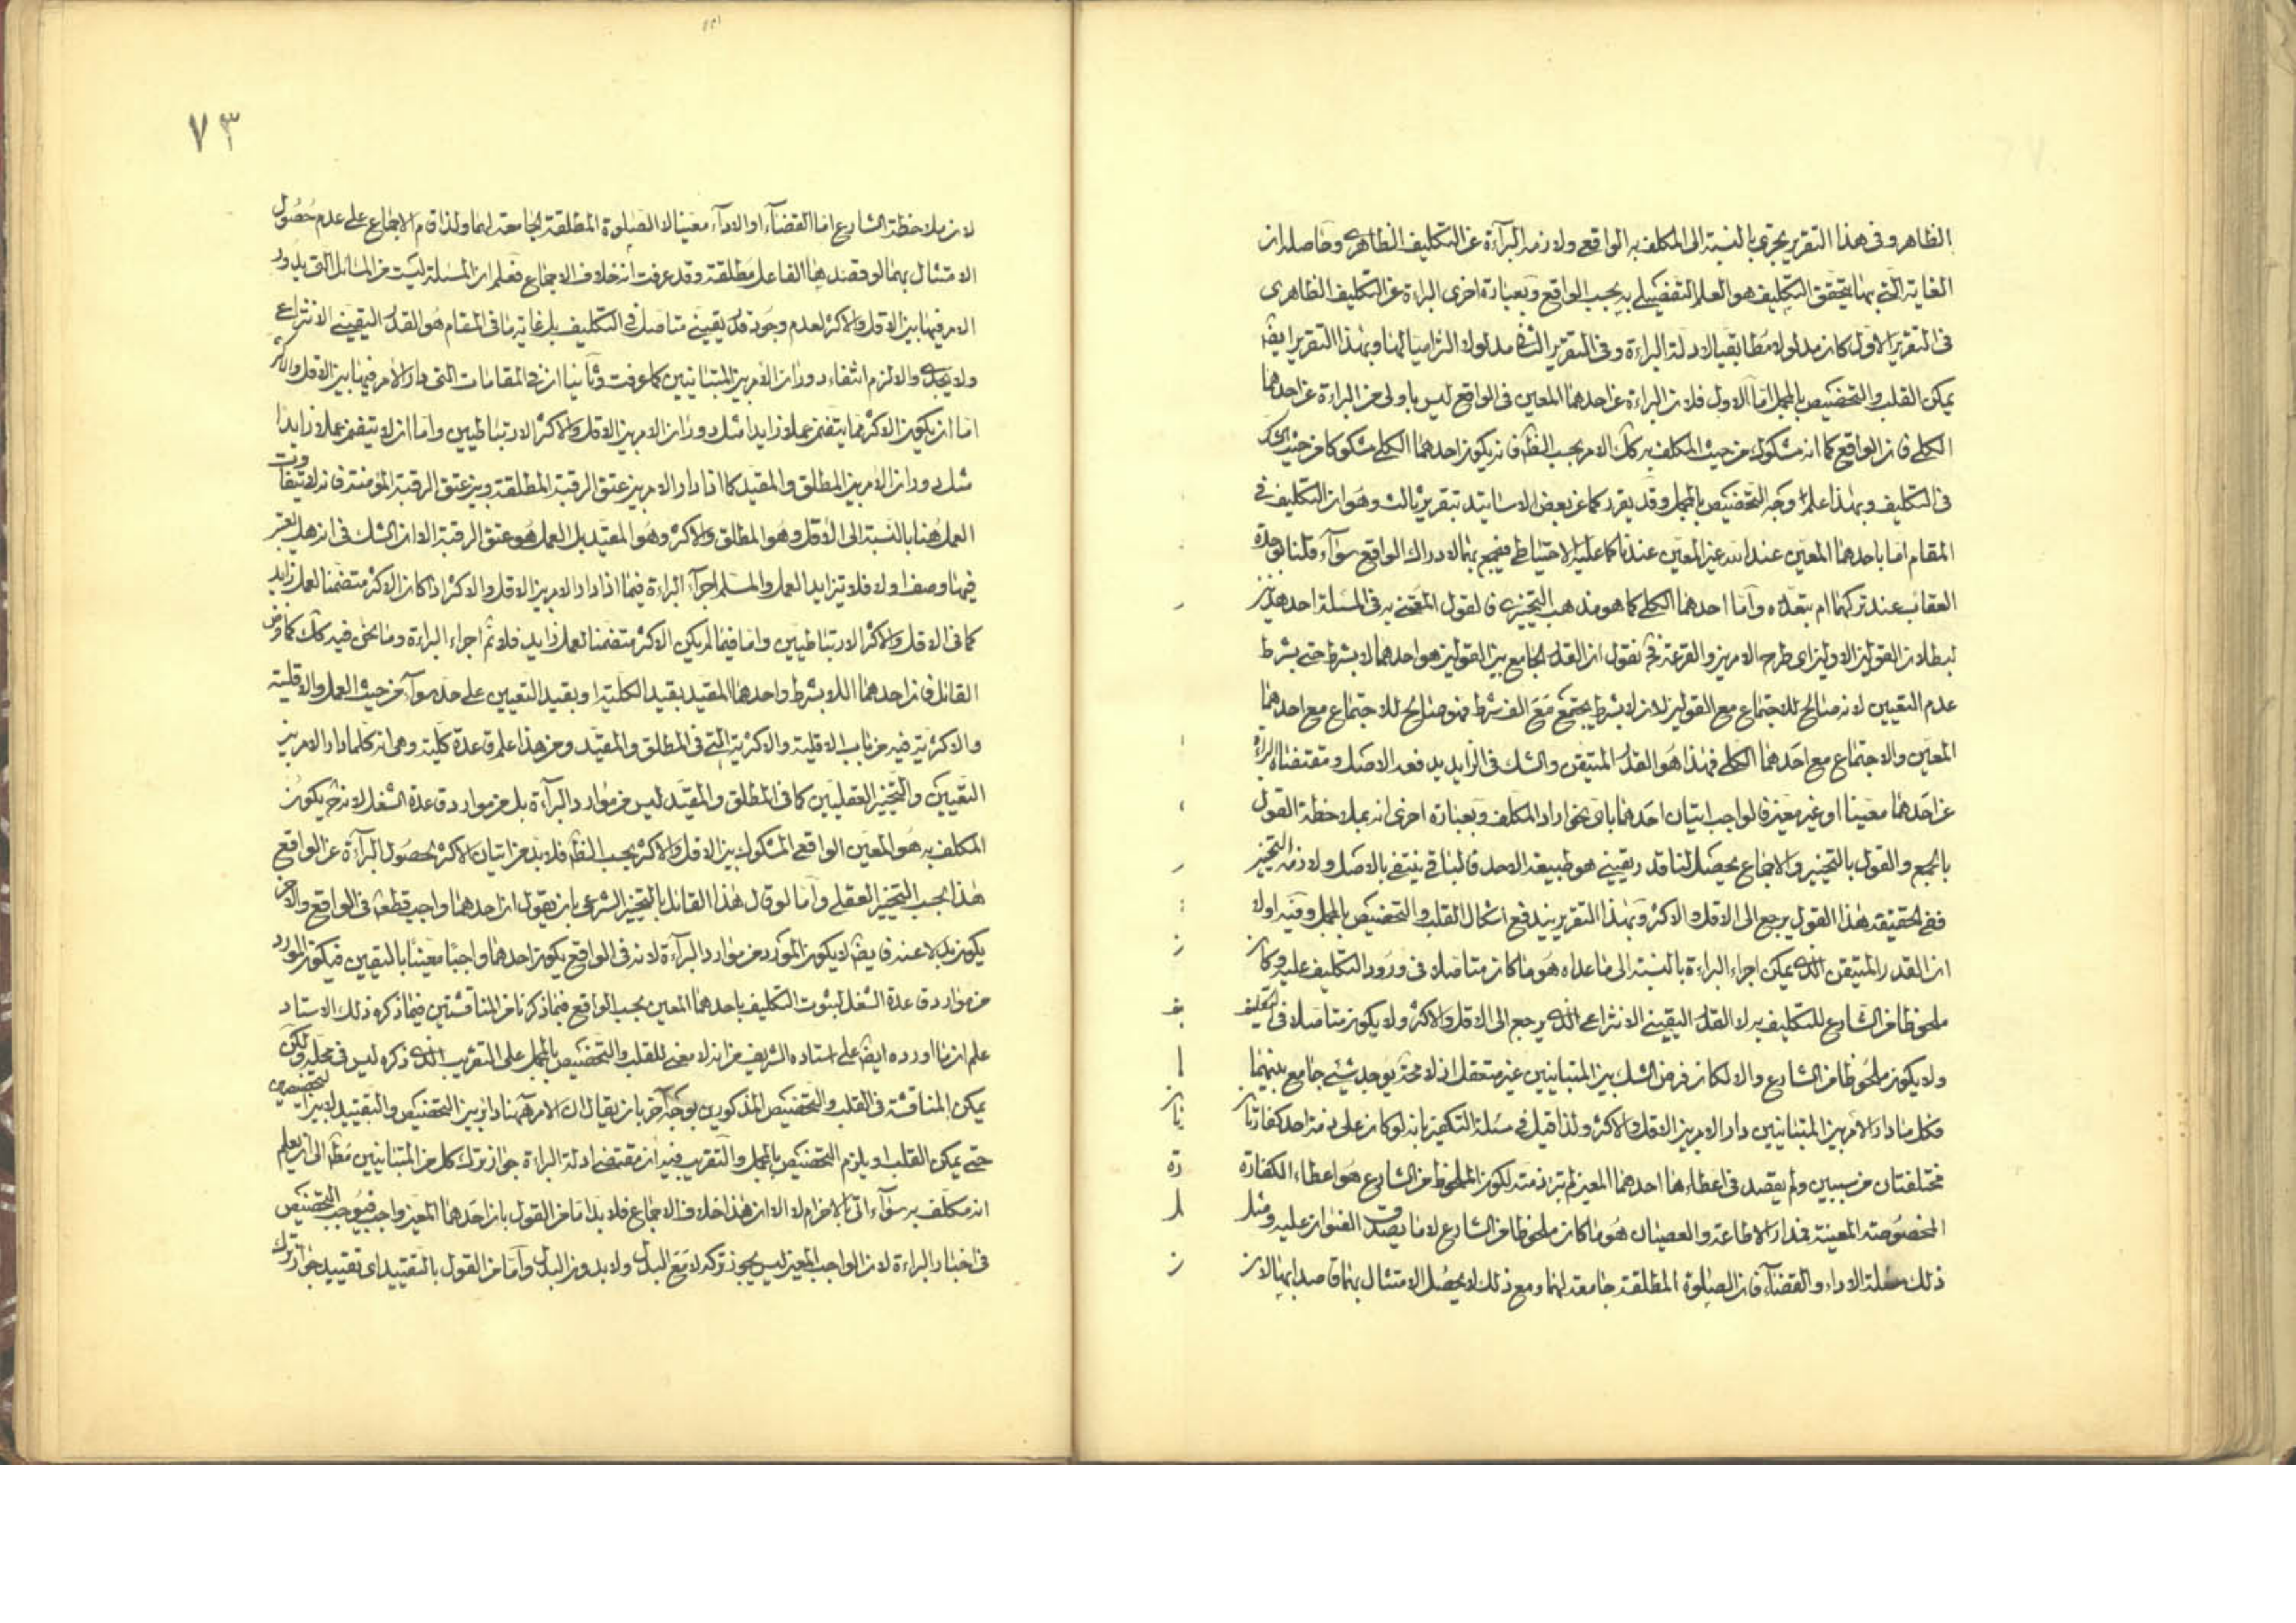 الظاهر وفى هذا التقرير يجرى بالنسبة الى المكلف به الواقعى ولازمه البرآءة عن التكليف الظاهرى وحاصله ان
الغاية التى بها يتحقق التكليف هو العلم التفصيلى به بحسب الواقع وبعبارة اخرى البراءة عن التكليف الظاهرى
فى التقرير الاول كان مدلولا مطابقيا لادلة البراءة وفى التقرير الثانى مدلولا التزاميا لها وبهذا التقرير ايضا
يمكن القلب والتخصيص بالمجمل اما الاول فلان البراءة عن احدهما المعين فى الواقع ليس باولى من البراءة عن احدهما
الكلى فان الواقع كما انه مشكوك من حيث المكلف به كك الامر بحسب الظ فانه يكون احدهما الكلى مشكوكا من حيث الشك
فى التكليف وبهذا علم وجه التخصيص بالمجمل وقد يقرر كما عن بعض الاساتيد بتقرير ثالث وهو ان التكليف فى
المقام اما باحدهما المعين عند الله غير المعين عندنا كما عليه الاحتياطى فيجمع بهما لادراك الواقع سوآء قلنا بوحدة
العقاب عند تركهما ام بتعدده واما احدهما الكلى كما هو مذهب التخييرى فالقول المفتى به فى المسئلة احد هذين
لبطلان القولين الاولين اى طرح الامرين والقرعة فح نقول ان القدر الجامع بين القولين هو احدهما لا بشرط حتى بشرط
عدم التعيين لانه صالح للاجتماع مع القولين لان لا بشرط يجتمع مع الف شرط فهو صالح للاجتماع مع احدهما
المعين والاجتماع مع احدهما الكلى فهذا هو القدر المتيقن والشك فى الزايد يدفعه الاصل ومقتضاه البراءة
عن احدهما معينا او غير معين فالواجب اتيان احدهما باى نحو اراد المكلف وبعبارة اخرى انه بملاحظة القول
بالجمع والقول بالتخيير والاجماع يحصل لنا قدر يقينى هو طبيعة الاحد فالباقى ينتفى بالاصل ولازمه التخيير
ففى الحقيقة هذا القول يرجع الى الاقل والاكثر وبهذا التقرير يندفع اشكال القلب والتخصيص بالمجمل وفيه اولا
ان القدر المتيقن الذى يمكن اجراء البراءة بالنسبة الى ما عداه هو ما كان متاصلا فى ورود التكليف عليه وكان
ملحوظا من الشارع للتكليف به لا القدر اليقينى الانتزاعى الذى يرجع الى الاقل والاكثر ولا يكون متاصلا فى التكليف
ولا يكون ملحوظا من الشارع والا لكان فرض الشك بين المتباينين غير متعقل اذ لا محة يوجد شئ جامع بينهما
فكل ما دار الامر بين المتباينين دار الامر بين الاقل والاكثر ولذا قيل فى مسئلة التكفير بانه لو كان على ذمة احد كفارتان
مختلفتان من سببين ولم يقصد فى اعطاءها احدهما المعين لم تبرء ذمته لكون الملحوظ من الشارع هو اعطاء الكفارة
المخصوصة المعينة فمدار الاطاعة والعصيان هو ما كان ملحوظا من الشارع لا ما يصدق العنوان عليه ومثل
ذلك مسئلة الاداء والقضآء فان الصلوة المطلقة جامعة لهما ومع ذلك لا يحصل الامتثال بهما قاصدا بها لان
٧٣
لان ملاحظة الشارع اما القضآء او الادآء معينا لا الصلوة المطلقة الجامعة لهما ولذا قام الاجماع على عدم حصول
الامتثال بهما لو قصد بها الفاعل مطلقة وقد عرفت انه خلاف الاجماع فعلم ان المسئلة ليست من المسائل التى يدور
الامر فيها بين الاقل والاكثر لعدم وجود قدر يقينى متاصل فى التكليف بل غاية ما فى المقام هو القدر اليقينى الانتزاعى
ولا يجدى والا لزم انتفاء دوران الامر بين المتباينين كما عرفت وثانيا ان فى المقامات التى دار الامر فيها بين الاقل والاكثر
اما ان يكون الاكثر مما يتضمن عملا زايدا مثل دوران الامر بين الاقل والاكثر الارتباطيين واما ان لا يتضمن عملا زايدا
مثل دوران الامر بين المطلق والمقيد كما اذا دار الامر بين عتق الرقبة المطلقة وبين عتق الرقبة المؤمنة فانه لا يتفاوت
العمل هنا بالنسبة الى الاقل وهو المطلق والاكثر وهو المقيد بل العمل هو عتق الرقبة الا ان الشك فى انه هل يعتبر
فيها وصف اولا فلا تزايد العمل والمسلم اجرآء البراءة فيما اذا دار الامر بين الاقل والاكثر اذا كان الاكثر متضمنا لعمل زايد
كما فى الاقل والاكثر الارتباطيين واما فيما لم يكن الاكثر متضمنا لعمل زايد فلا نم اجراء البراءة وما نحن فيه كك كما فرض
القائل فان احدهما اللا بشرط واحدهما المقيد بقيد الكلية او بقيد التعيين على حد سوآء من حيث العمل والاقلية
والاكثرية فيه من باب الاقلية والاكثرية التى فى المطلق والمقيد ومن هذا علم قاعدة كلية وهى انه كلما دار الامر بين
التعيين والتخيير العقليين كما فى المطلق والمقيد ليس من موارد البرآءة بل من موارد قاعدة الشغل لانه ح يكون
المكلف به هو المعين الواقعى المشكوك بين الاقل والاكثر بحسب الظ فلا بد من اتيان الاكثر لحصول البرآءة عن الواقع
هذا بحسب التخيير العقلى واما لو قال هذا القائل بالتخيير الشرعى بان يقول ان احدهما واجب قطعا فى الواقع والاخر
يكون بدلا عنه فايضا لا يكون المورد من موارد البرآءة لانه فى الواقع يكون احدهما واجبا معينا باليقين فيكون المورد
من موارد قاعدة الشغل لثبوت التكليف باحدهما المعين بحسب الواقع فبما ذكرنا من المناقشتين فيما ذكره ذلك الاستاد
علم ان ما اورده ايضا على استاده الشريف من انه لا معنى للقلب والتخصيص بالمجمل على التقريب الذى ذكره ليس فى محله ولكن
يمكن المناقشة فى القلب والتخصيص المذكورين بوجه آخر بان يقال ان الامر ههنا دار بين التخصيص والتقييد لا بين التخصيصين
حتى يمكن القلب او يلزم التخصيص بالمجمل والتقريب فيه ان مقتضى ادلة البراءة جواز ترك كل من المتباينين مط الى ان يعلم
انه مكلف به سوآء اتى بالاخر ام لا الا ان هذا خلاف الاجماع فلا بد اما من القول بان احدهما المعين واجب فيوجب التخصيص
فى اخبار البراءة لان الواجب المعين ليس يجوز تركه لا مع البدل ولا بدون البدل واما من القول بالتقييد اى تقييد جواز ترك